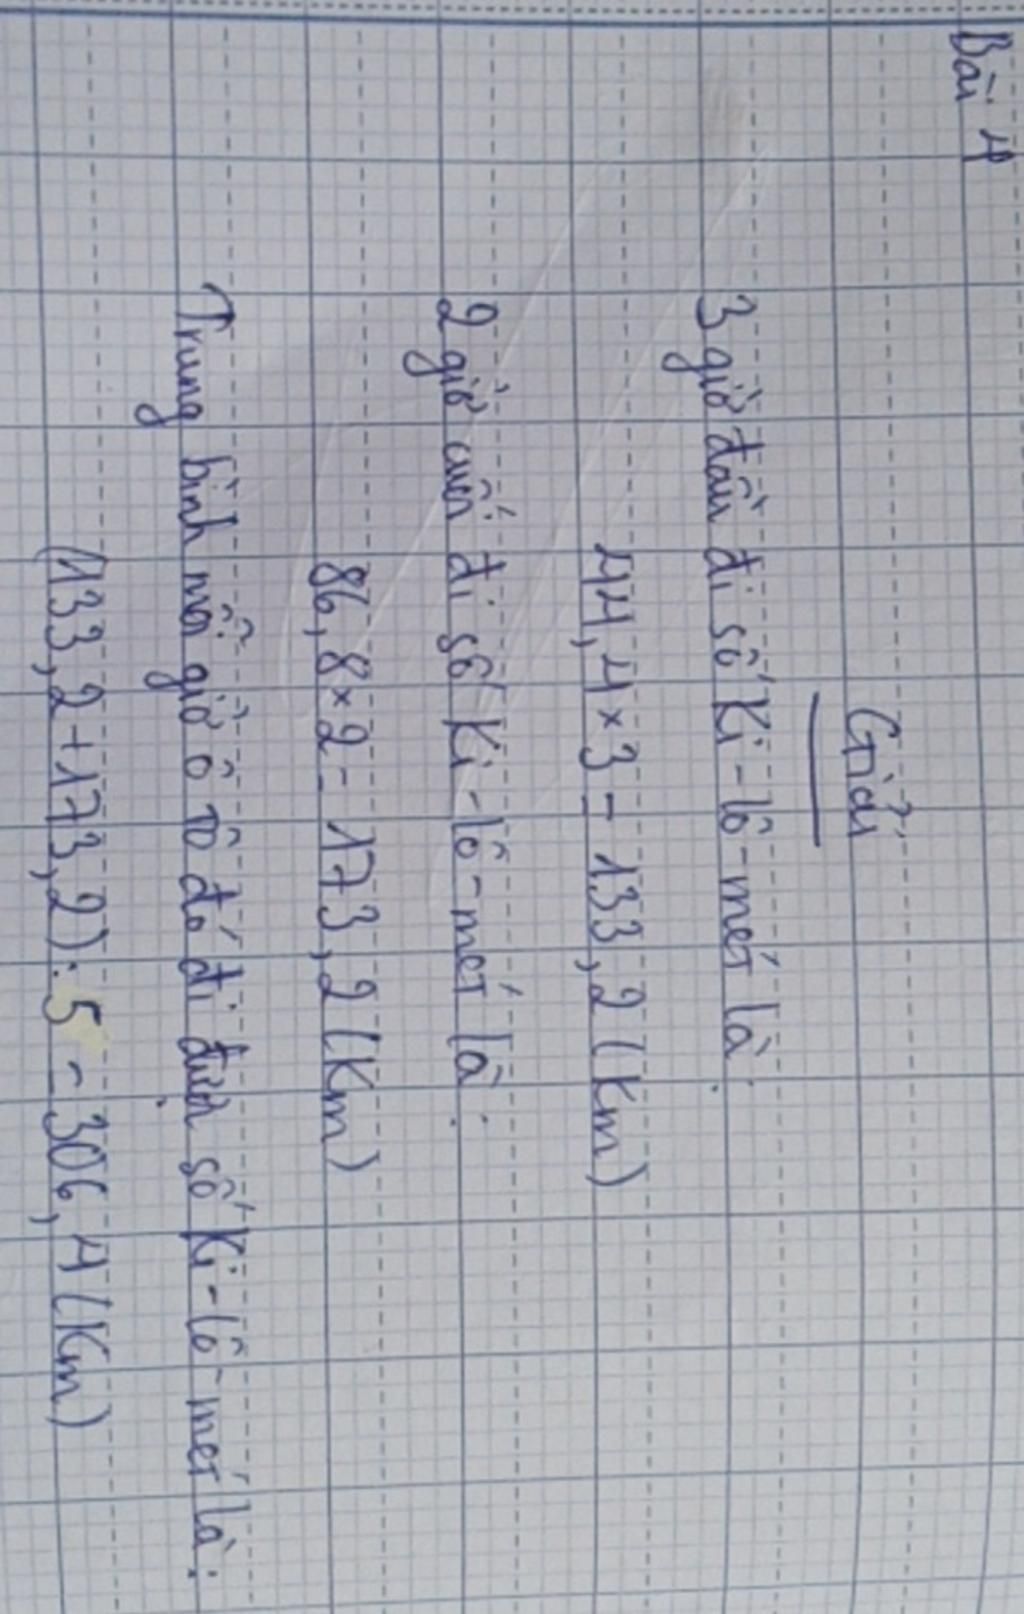 Bài 4
Giải
3 giờ đầu đi số Ki-lô-mét là:
44,4 × 3 = 133,2 (Km)
2 giờ cuối đi số Ki-lô-mét là:
86,8 × 2 = 173,2 (Km)
Trung bình mỗi giờ ô tô đó đi được số Ki-lô-mét là:
(133,2 + 173,2) : 5 = 306,4 (Km)